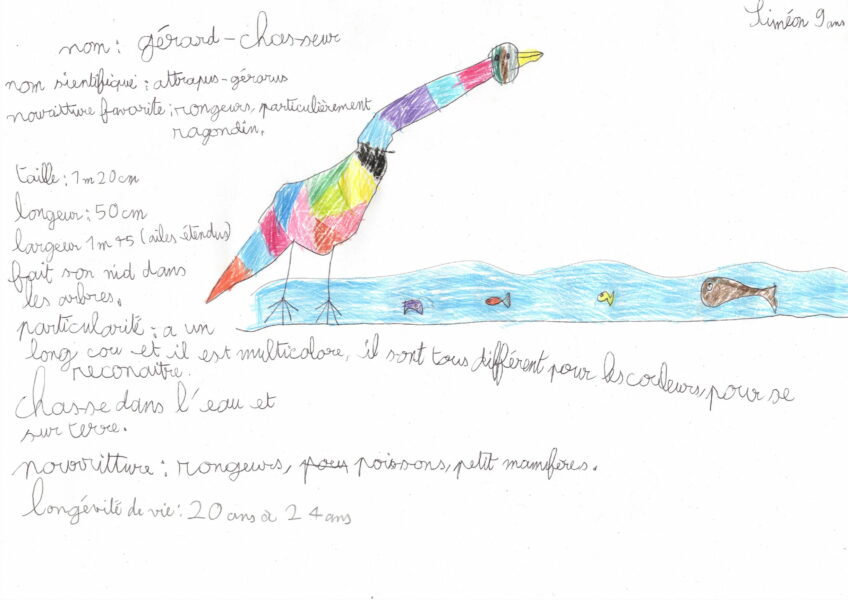 Siméon 9 ans
nom : gérard-chasseur
nom sientifique : attrapus-gérarus
nourriture favorite : rongeurs, particulièrement
ragondin.
taille : 1 m 20 cm
longeur : 50 cm
largeur 1 m 45 (ailes étendus)
fait son nid dans
les arbres.
particularité : a un
long cou et il est multicolore, il sont tous différent pour les couleurs, pour se
reconaitre.
chasse dans l'eau et
sur terre.
nourritture : rongeurs, poissons, petit mamifères.
longévité de vie : 20 ans à 24 ans